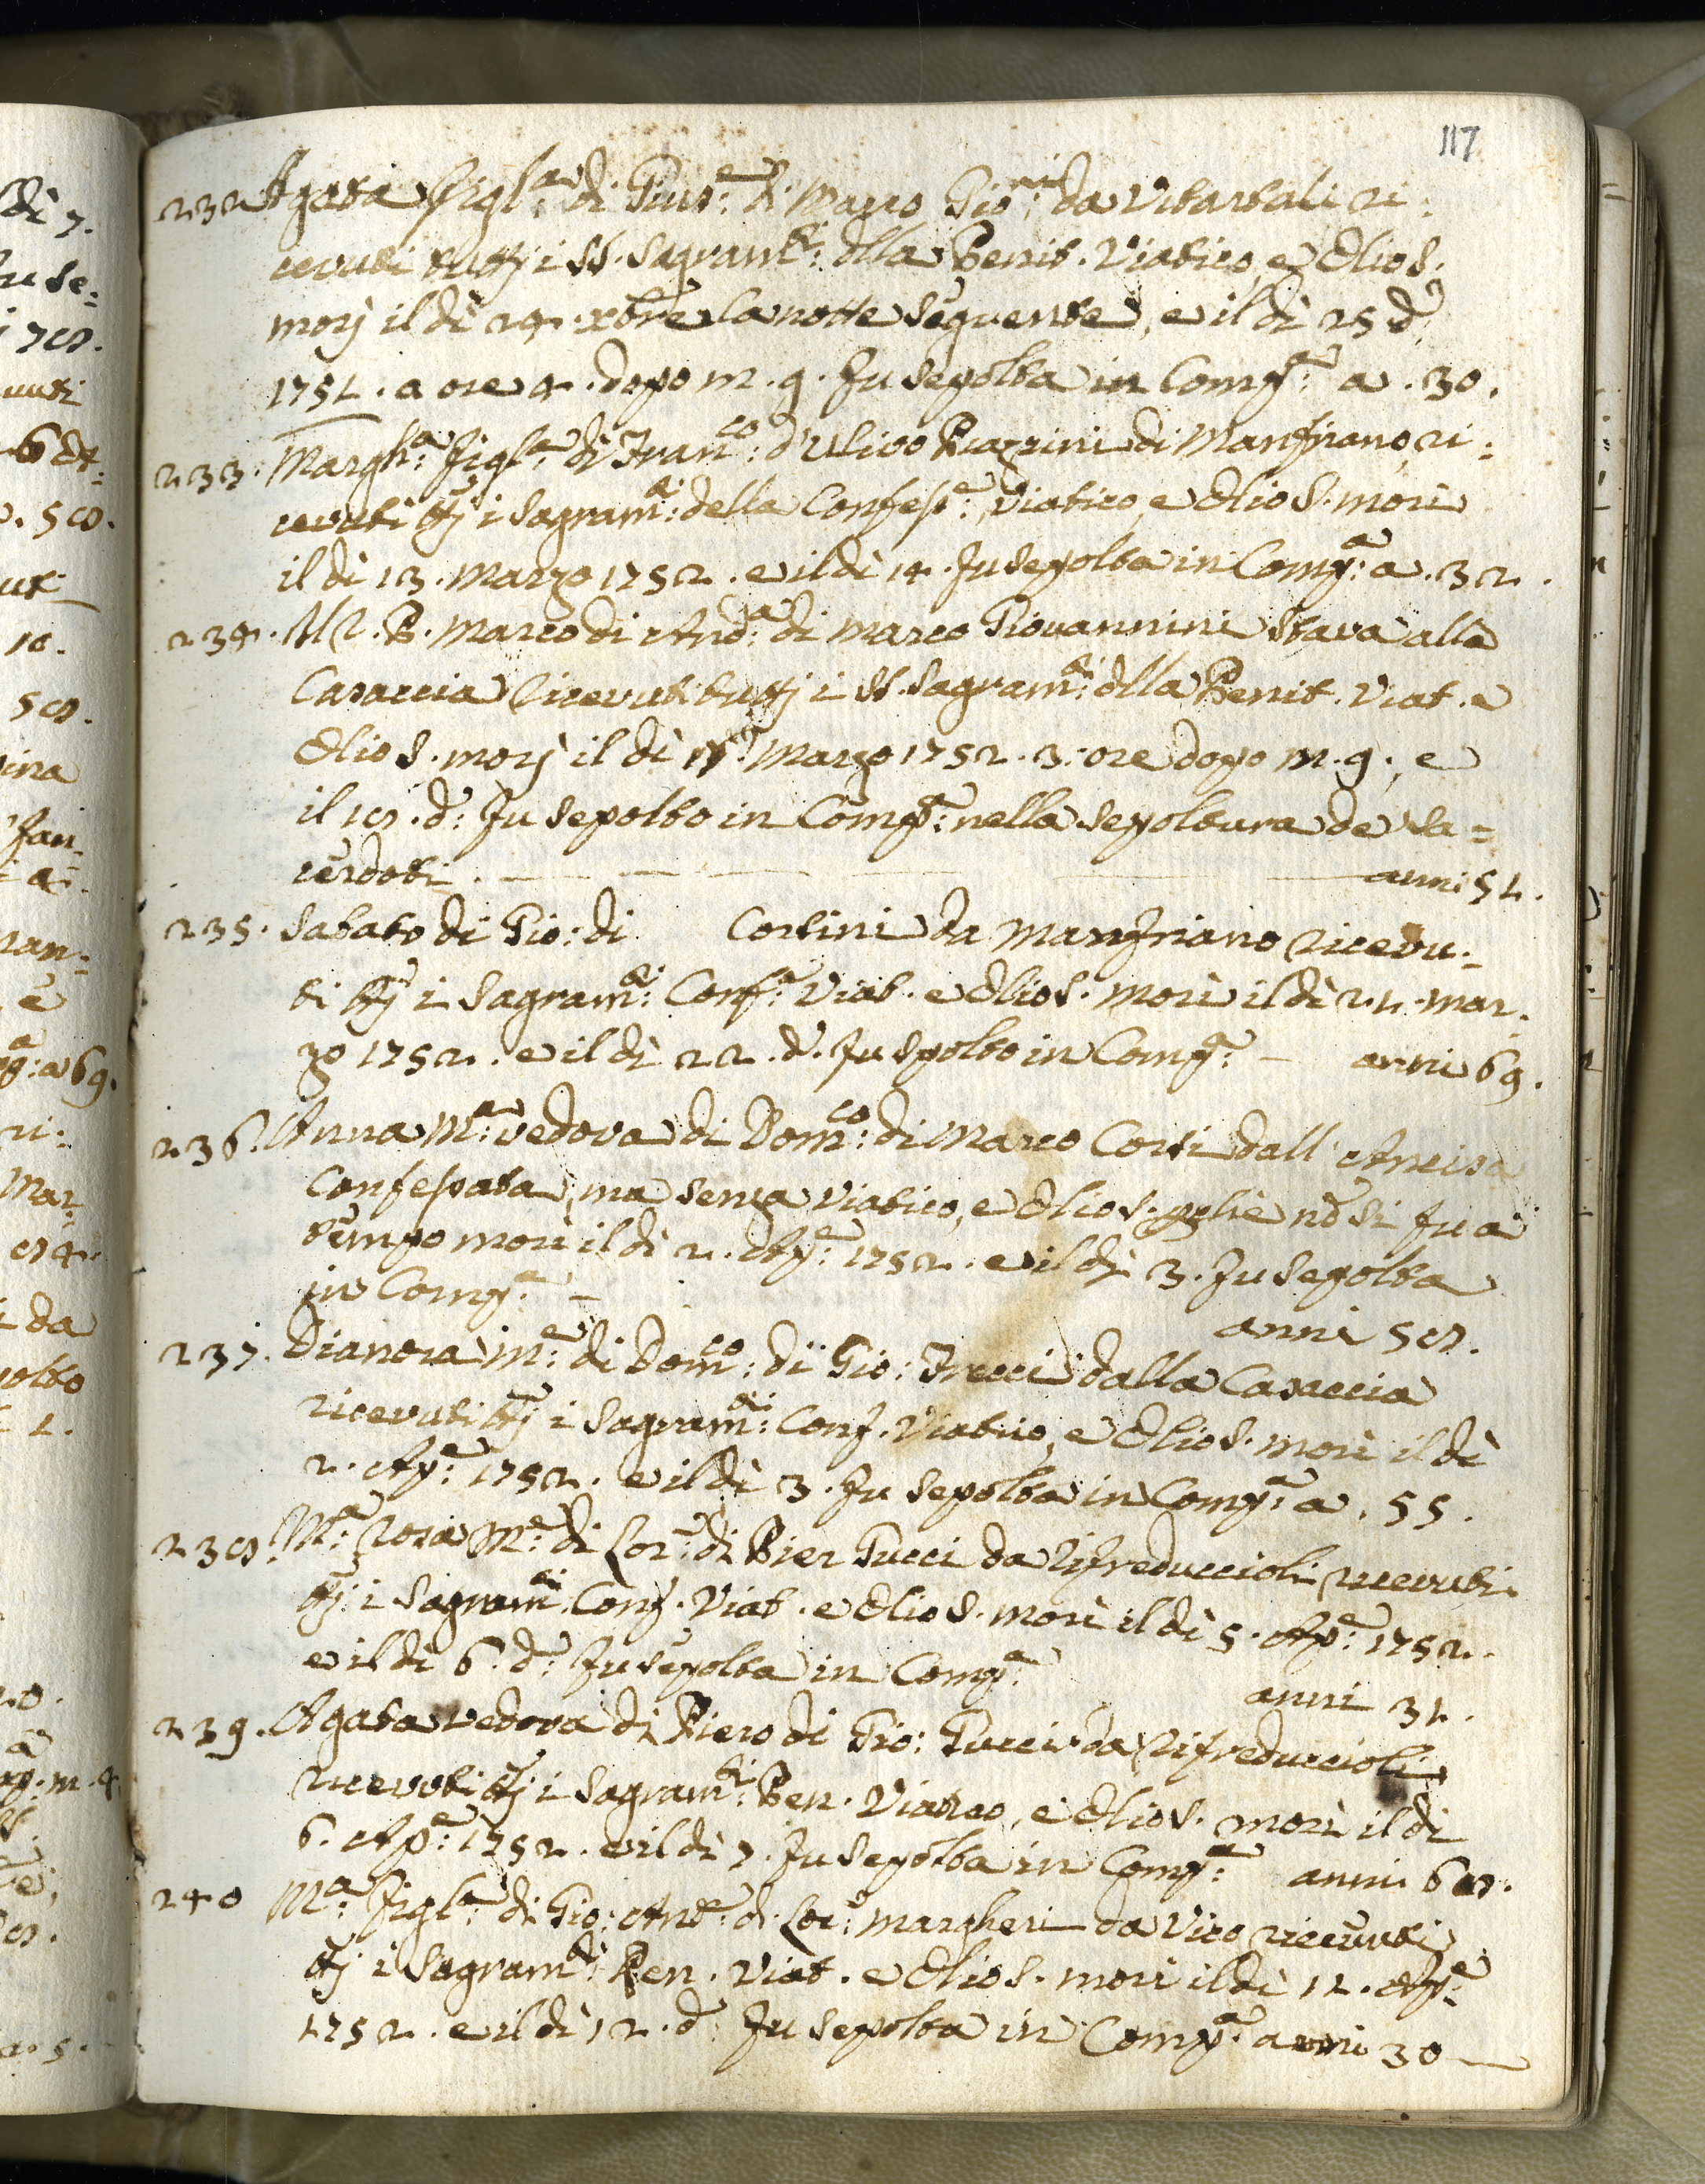 117
232 Agata figl.a di Gius.e di Marco Gio:ni da Vitartali ri:
cevuti tuttj i SS. Sagram.ti dlla Penit. Viatico, e Olio S.
morj il dì 24. xbre la notte seguente, e il dì 25 d.o
1751. a ore 4. dopo m. g. fu sepolta in Comp.a a. 30.
233. Margh.a figl.a di Fran.co d'Ulivo Piazzini di Manfriano, ri:
cevuti ttj i sagram.ti della Confess.e, Viatico, e Olio S. morì
il dì 13. Marzo 1752. e il dì 14. fu sepolta in Comp.a a. 32.
234. Il R. P. Marco di And.a di Marco Giovannini stava alla
Casaccia ricevuti tuttj i SS. Sagram.ti dlla Penit. Viat. e
Olio S. morj il dì Marzo 1752. 3. ore dopo m. g., e
il 18. d.o fu sepolto in Comp.a nella sepoltura de Sa=
cerdoti. anni 51.
235. Sabato di Gio: di Cortini da Manfriano ricevu:
ti ttj i Sagram.ti Conf.e Viat. e Olio S. morì il dì 21. Mar:
zo 1752. e il dì 22. d.o fu spolto in Comp.a anni 69.
236. Anna M.a vedova di Dom.co di Marco Corti dall' Ancisa
Confessata, ma senza Viatico, e Olio S. pchè nō si fu a
tempo morì il dì 2. Ap.e 1752. e il dì 3. fu sepolta
in Comp.a
anni 58.
237. Dianora m.e di Dom.co di Gio: Frecci dalla Casaccia
ricevuti ttj i Sagram.ti Conf. Viatico, e Olio S. morì il dì
2. Ap.e 1752. e il dì 3. fu sepolta in Comp.a a. 55.
238. M.a Rosa M.e di Lor.o di Pier Pucci da Rifreduccioli ricevuti
ttj i Sagram.ti Conf. Viat. e Olio S. morì il dì 5. Ap.e 1752.
e il dì 6. d.o fu sepolta in Comp.a
anni 31.
239. Agata vedova di Piero di Gio: Pucci da Rifreduccioli
ricevuti ttj i Sagram.ti Pen. Viatico, e Olio S. morì il dì
6. Ap.e 1752. e il dì 7. fu sepolta in Comp.a anni 68.
240 M.a figl.a di Gio: And.a di Lor.o Margheri da Vico ricevuti
ttj i Sagram.ti Pen. Viat. e Olio S. morì il dì 11. Ap.e
1752. e il dì 12. d.o fu sepolta in Comp.a anni 30